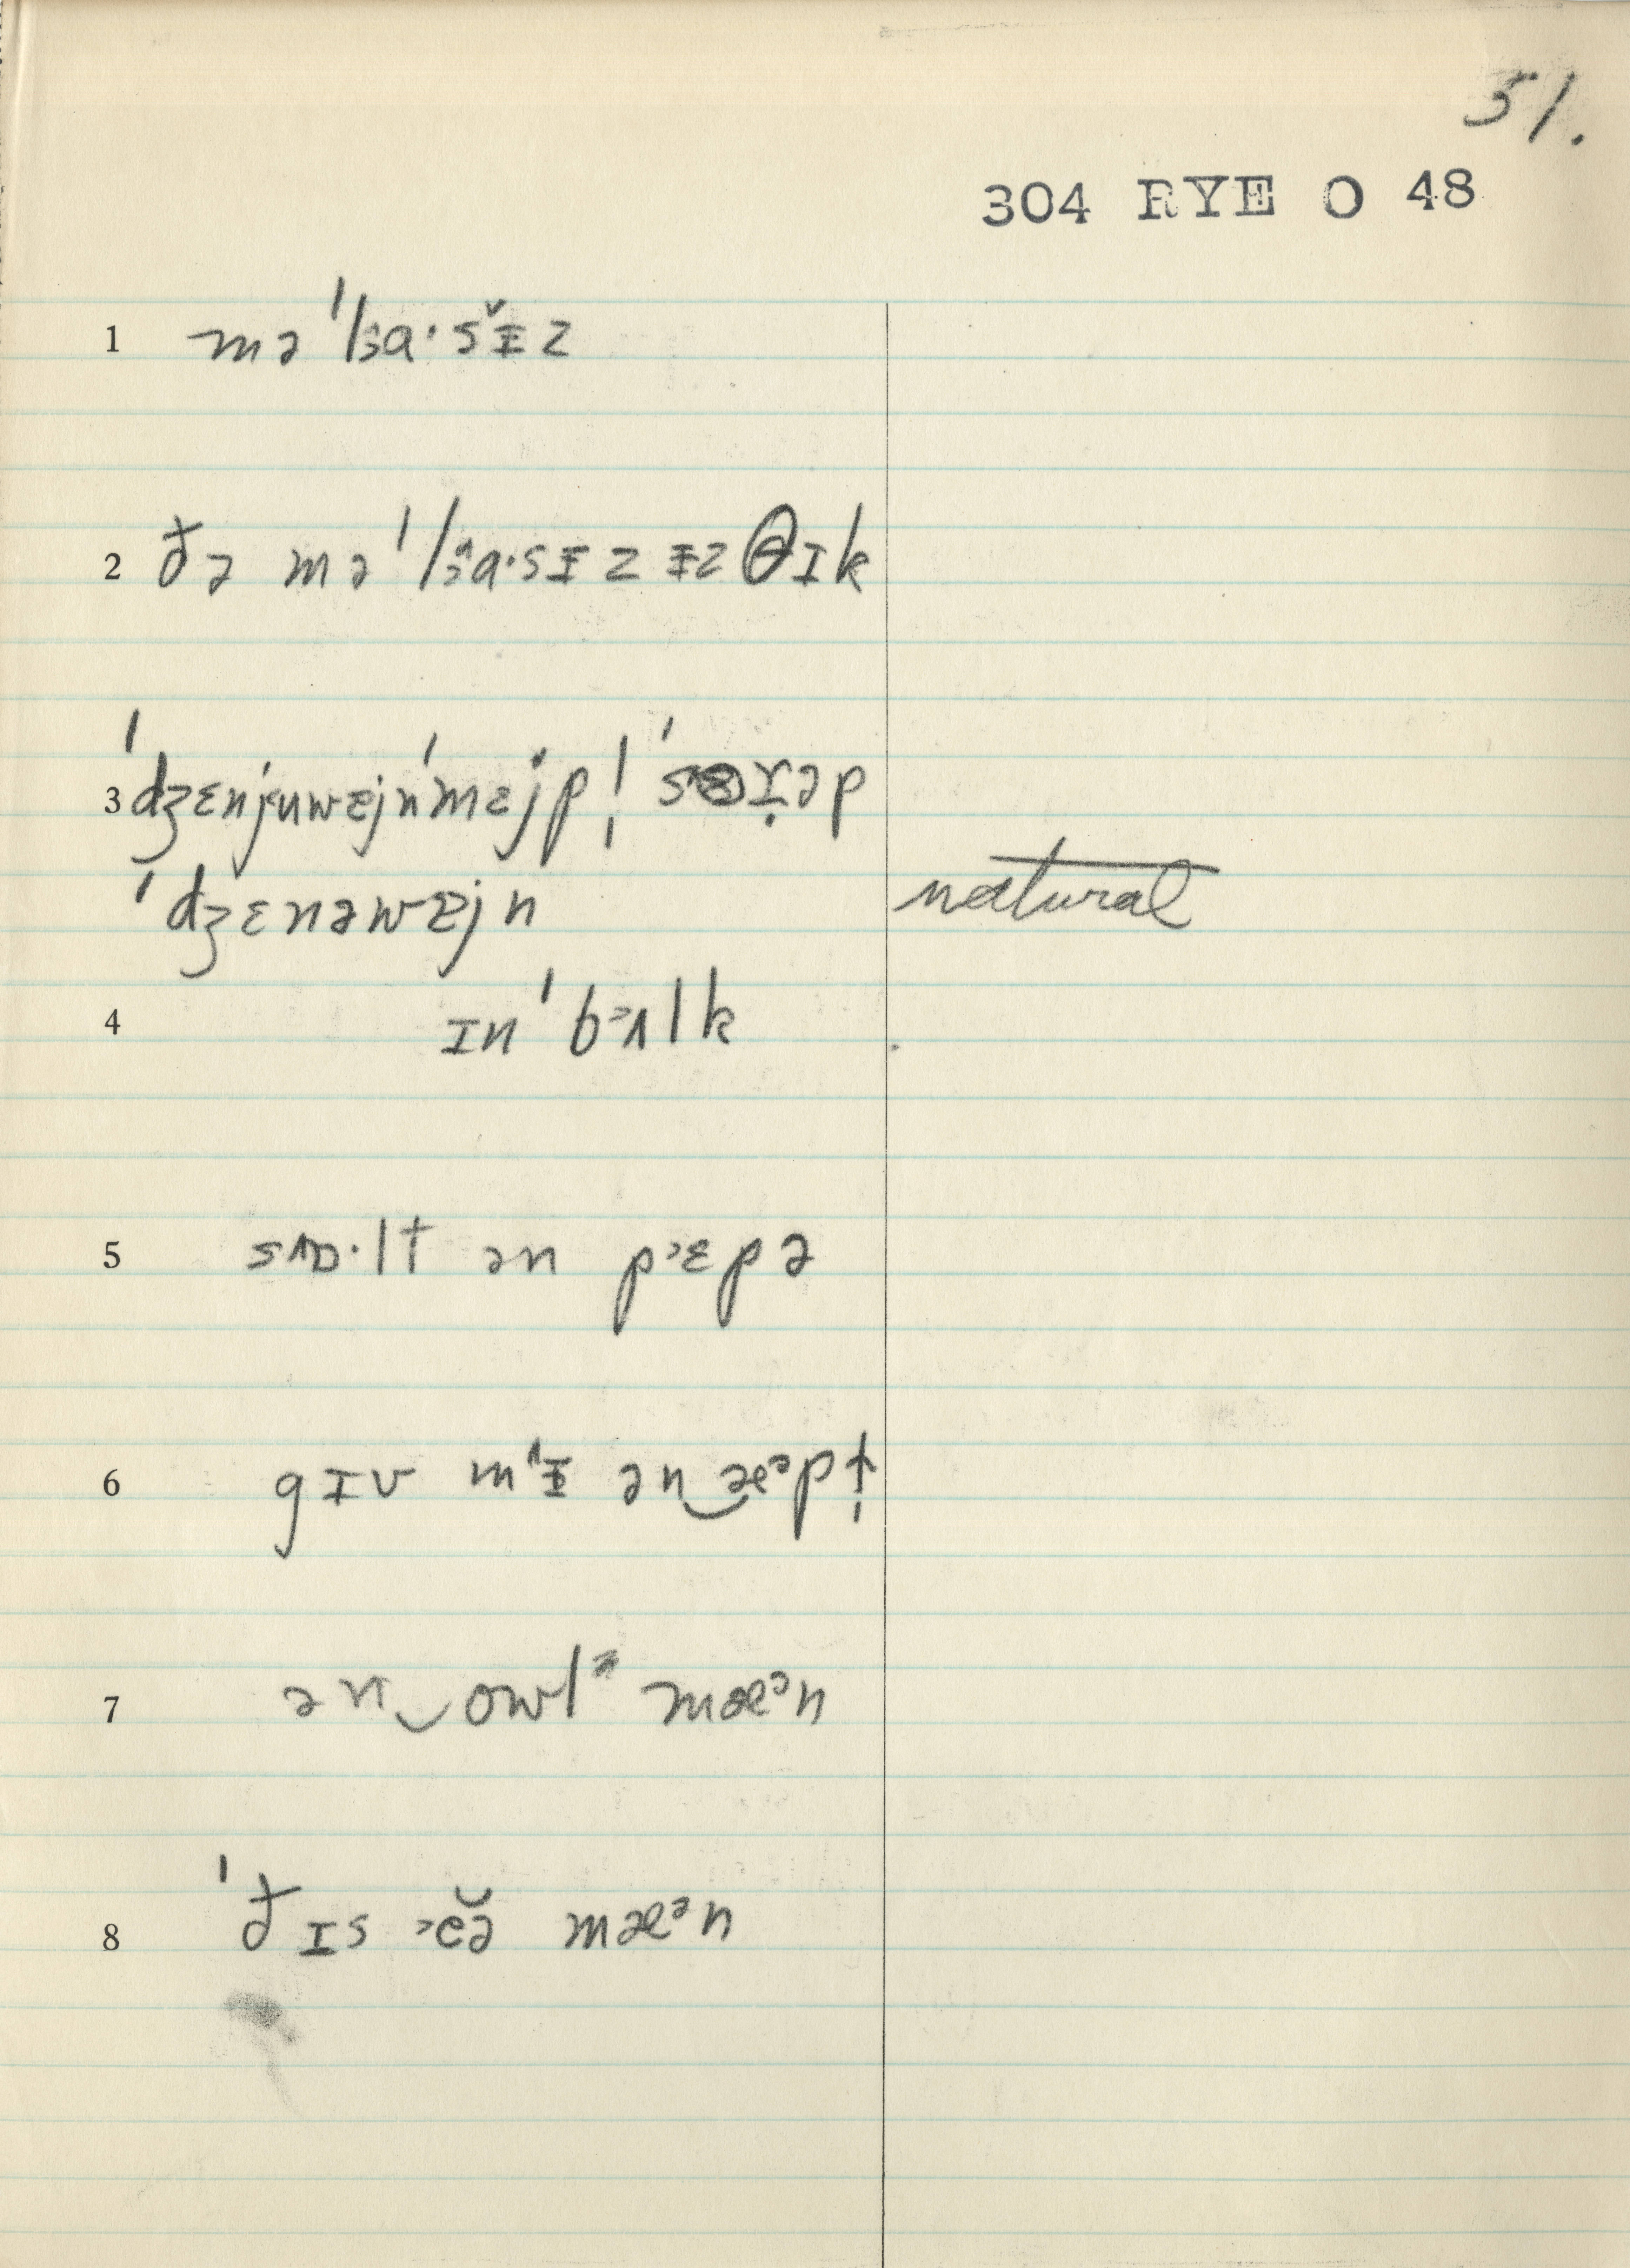 51.
304 RYE O 48
1 mə ˈlɜa·šɨz
2 ðə mə ˈlɜa·sɨz ɨz θɪk
3 ˈdʒɛnjuwɐjnˈmejp! ˈsɪṛəp
ˈdʒɛnəwɐjn natural
4 ɪnˈ bʌlk
5 sɒ·lt ən pɛpə
6 gɪv mɨ ən‿æᵊpt
7 ən‿owlᵊ mæᵊn
8 ˈðɪs ĕə mæᵊn